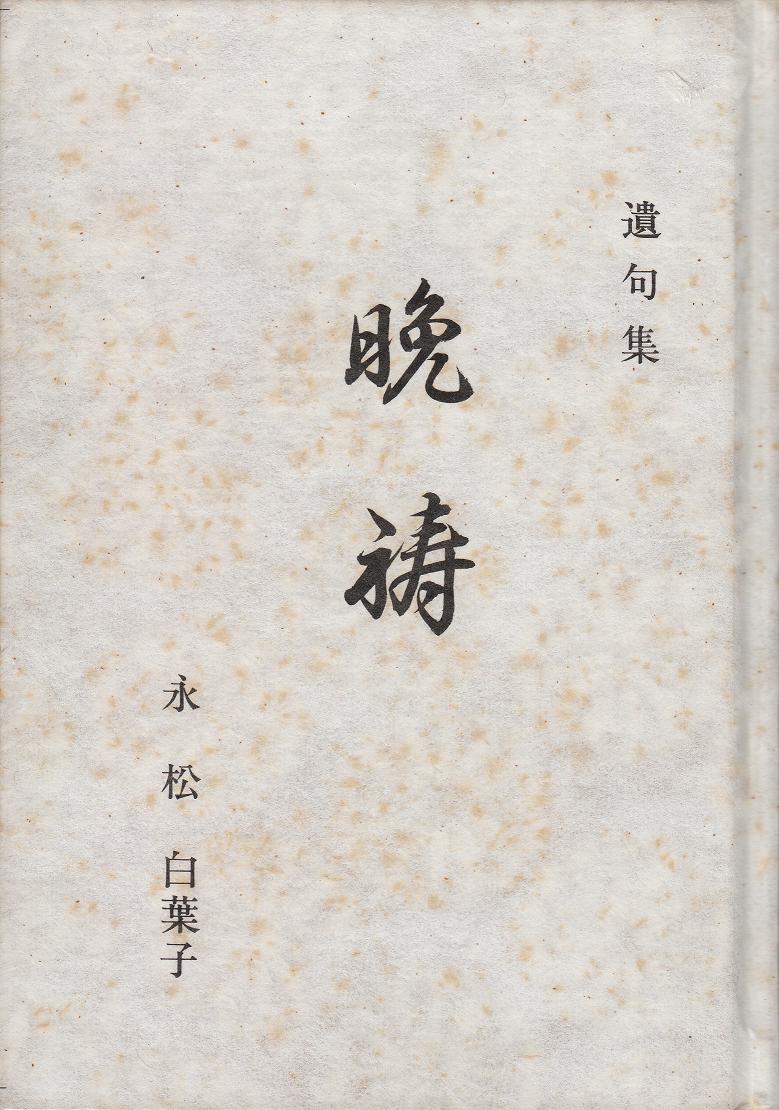 遺句集
晩祷
永松 白葉子